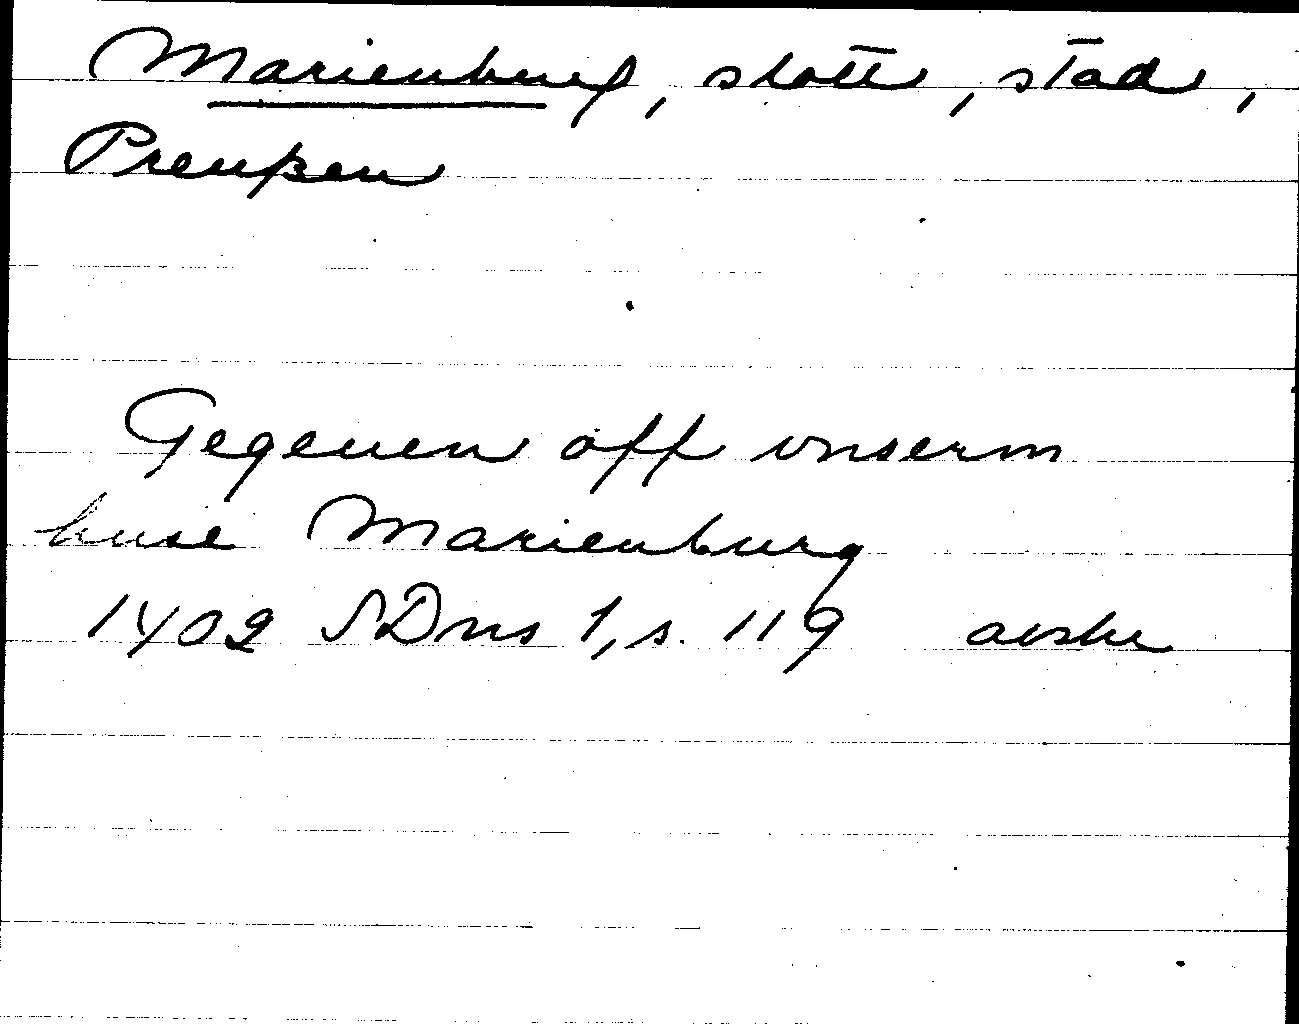 Marienburg, slott, stad,
Preußen
Gegeuen off vnserm
huse Marienburg
1402 SDns 1, s. 119 avskr